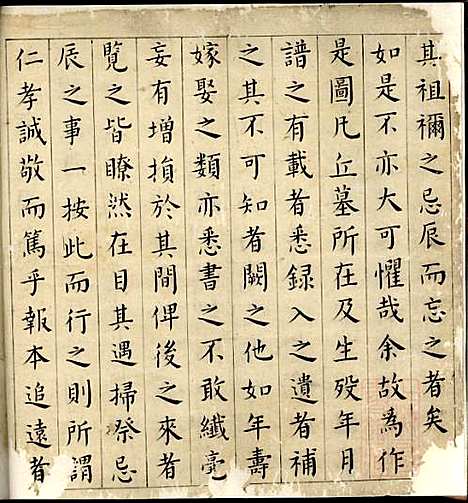 其祖禰之忌辰而忘之者矣
如是不亦大可懼哉余故為作
是圖凡丘墓所在及生歿年月
譜之有載者悉錄入之遺者補
之其不可知者闕之他如年壽
嫁娶之類亦悉書之不敢纖毫
妄有增損於其間俾後之來者
覽之皆瞭然在目其遇掃祭忌
辰之事一按此而行之則所謂
仁孝誠敬而篤乎報本追遠者